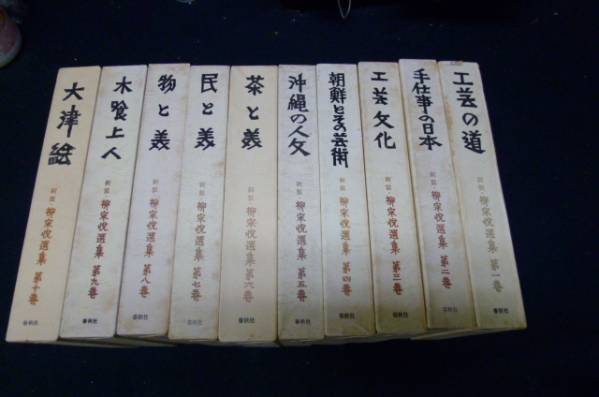 工芸の道
新装・柳宗悦選集 第一巻
手仕事の日本
新装・柳宗悦選集 第二巻
春秋社
工芸文化
新装・柳宗悦選集 第三巻
春秋社
朝鮮とその芸術
新装・柳宗悦選集 第四巻
春秋社
沖縄の人文
新装・柳宗悦選集 第五巻
春秋社
茶と美
新装・柳宗悦選集 第六巻
春秋社
民と美
新装・柳宗悦選集 第七巻
春秋社
物と美
新装・柳宗悦選集 第八巻
春秋社
木喰上人
新装・柳宗悦選集 第九巻
春秋社
大津絵
新装・柳宗悦選集 第十巻
春秋社